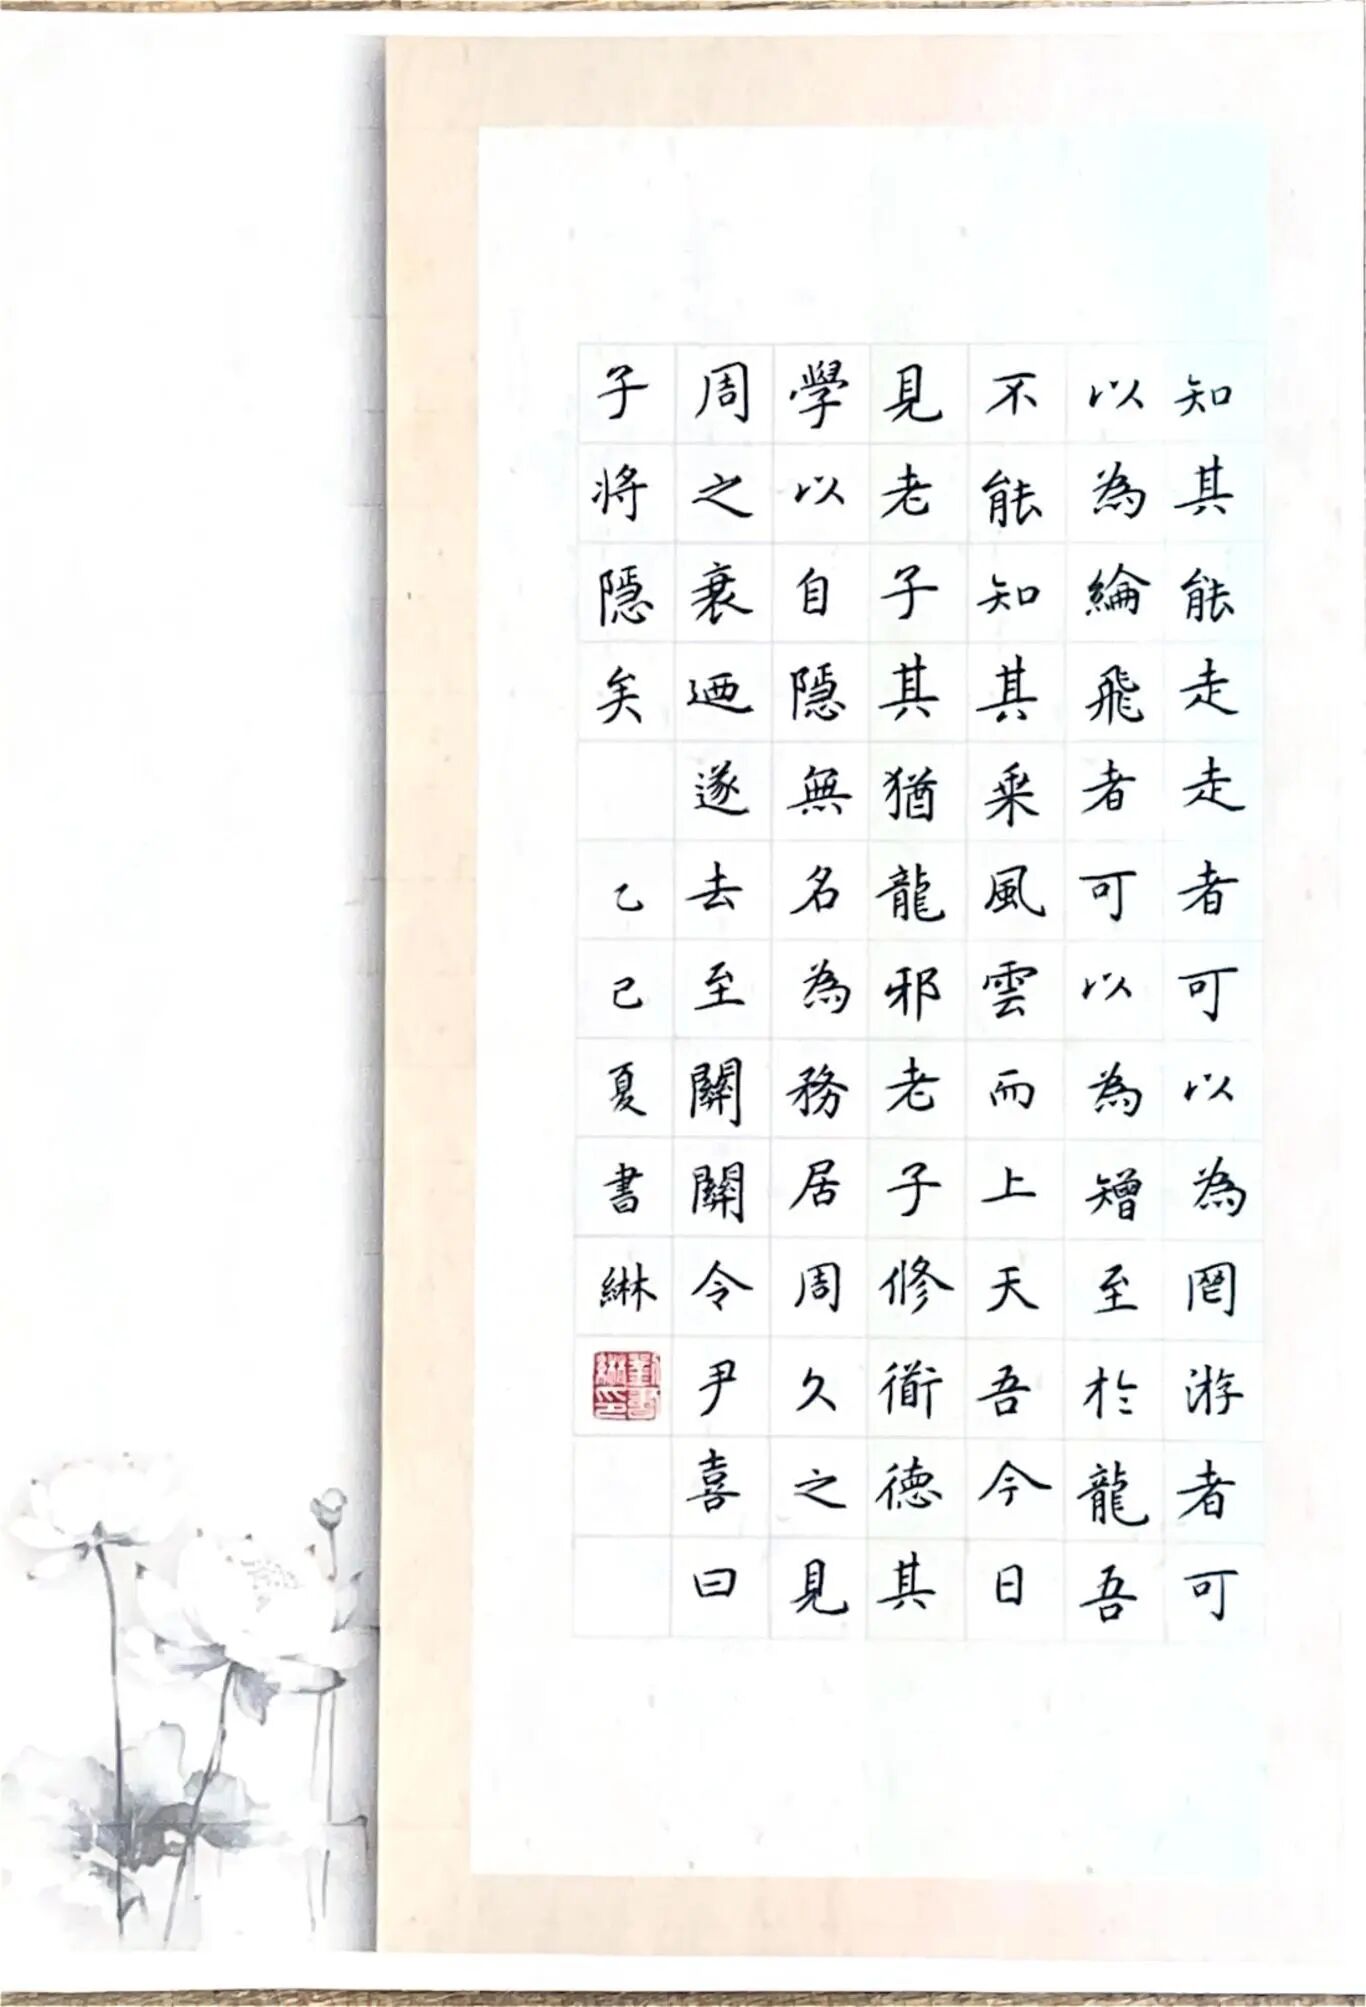 知其能走走者可以為罔游者可
以為綸飛者可以為矰至於龍吾
不能知其乗風雲而上天吾今日
見老子其猶龍邪老子修衜德其
學以自隱無名為務居周久之見
周之衰迺遂去至關關令尹喜曰
子将隱矣 乙巳夏書綝